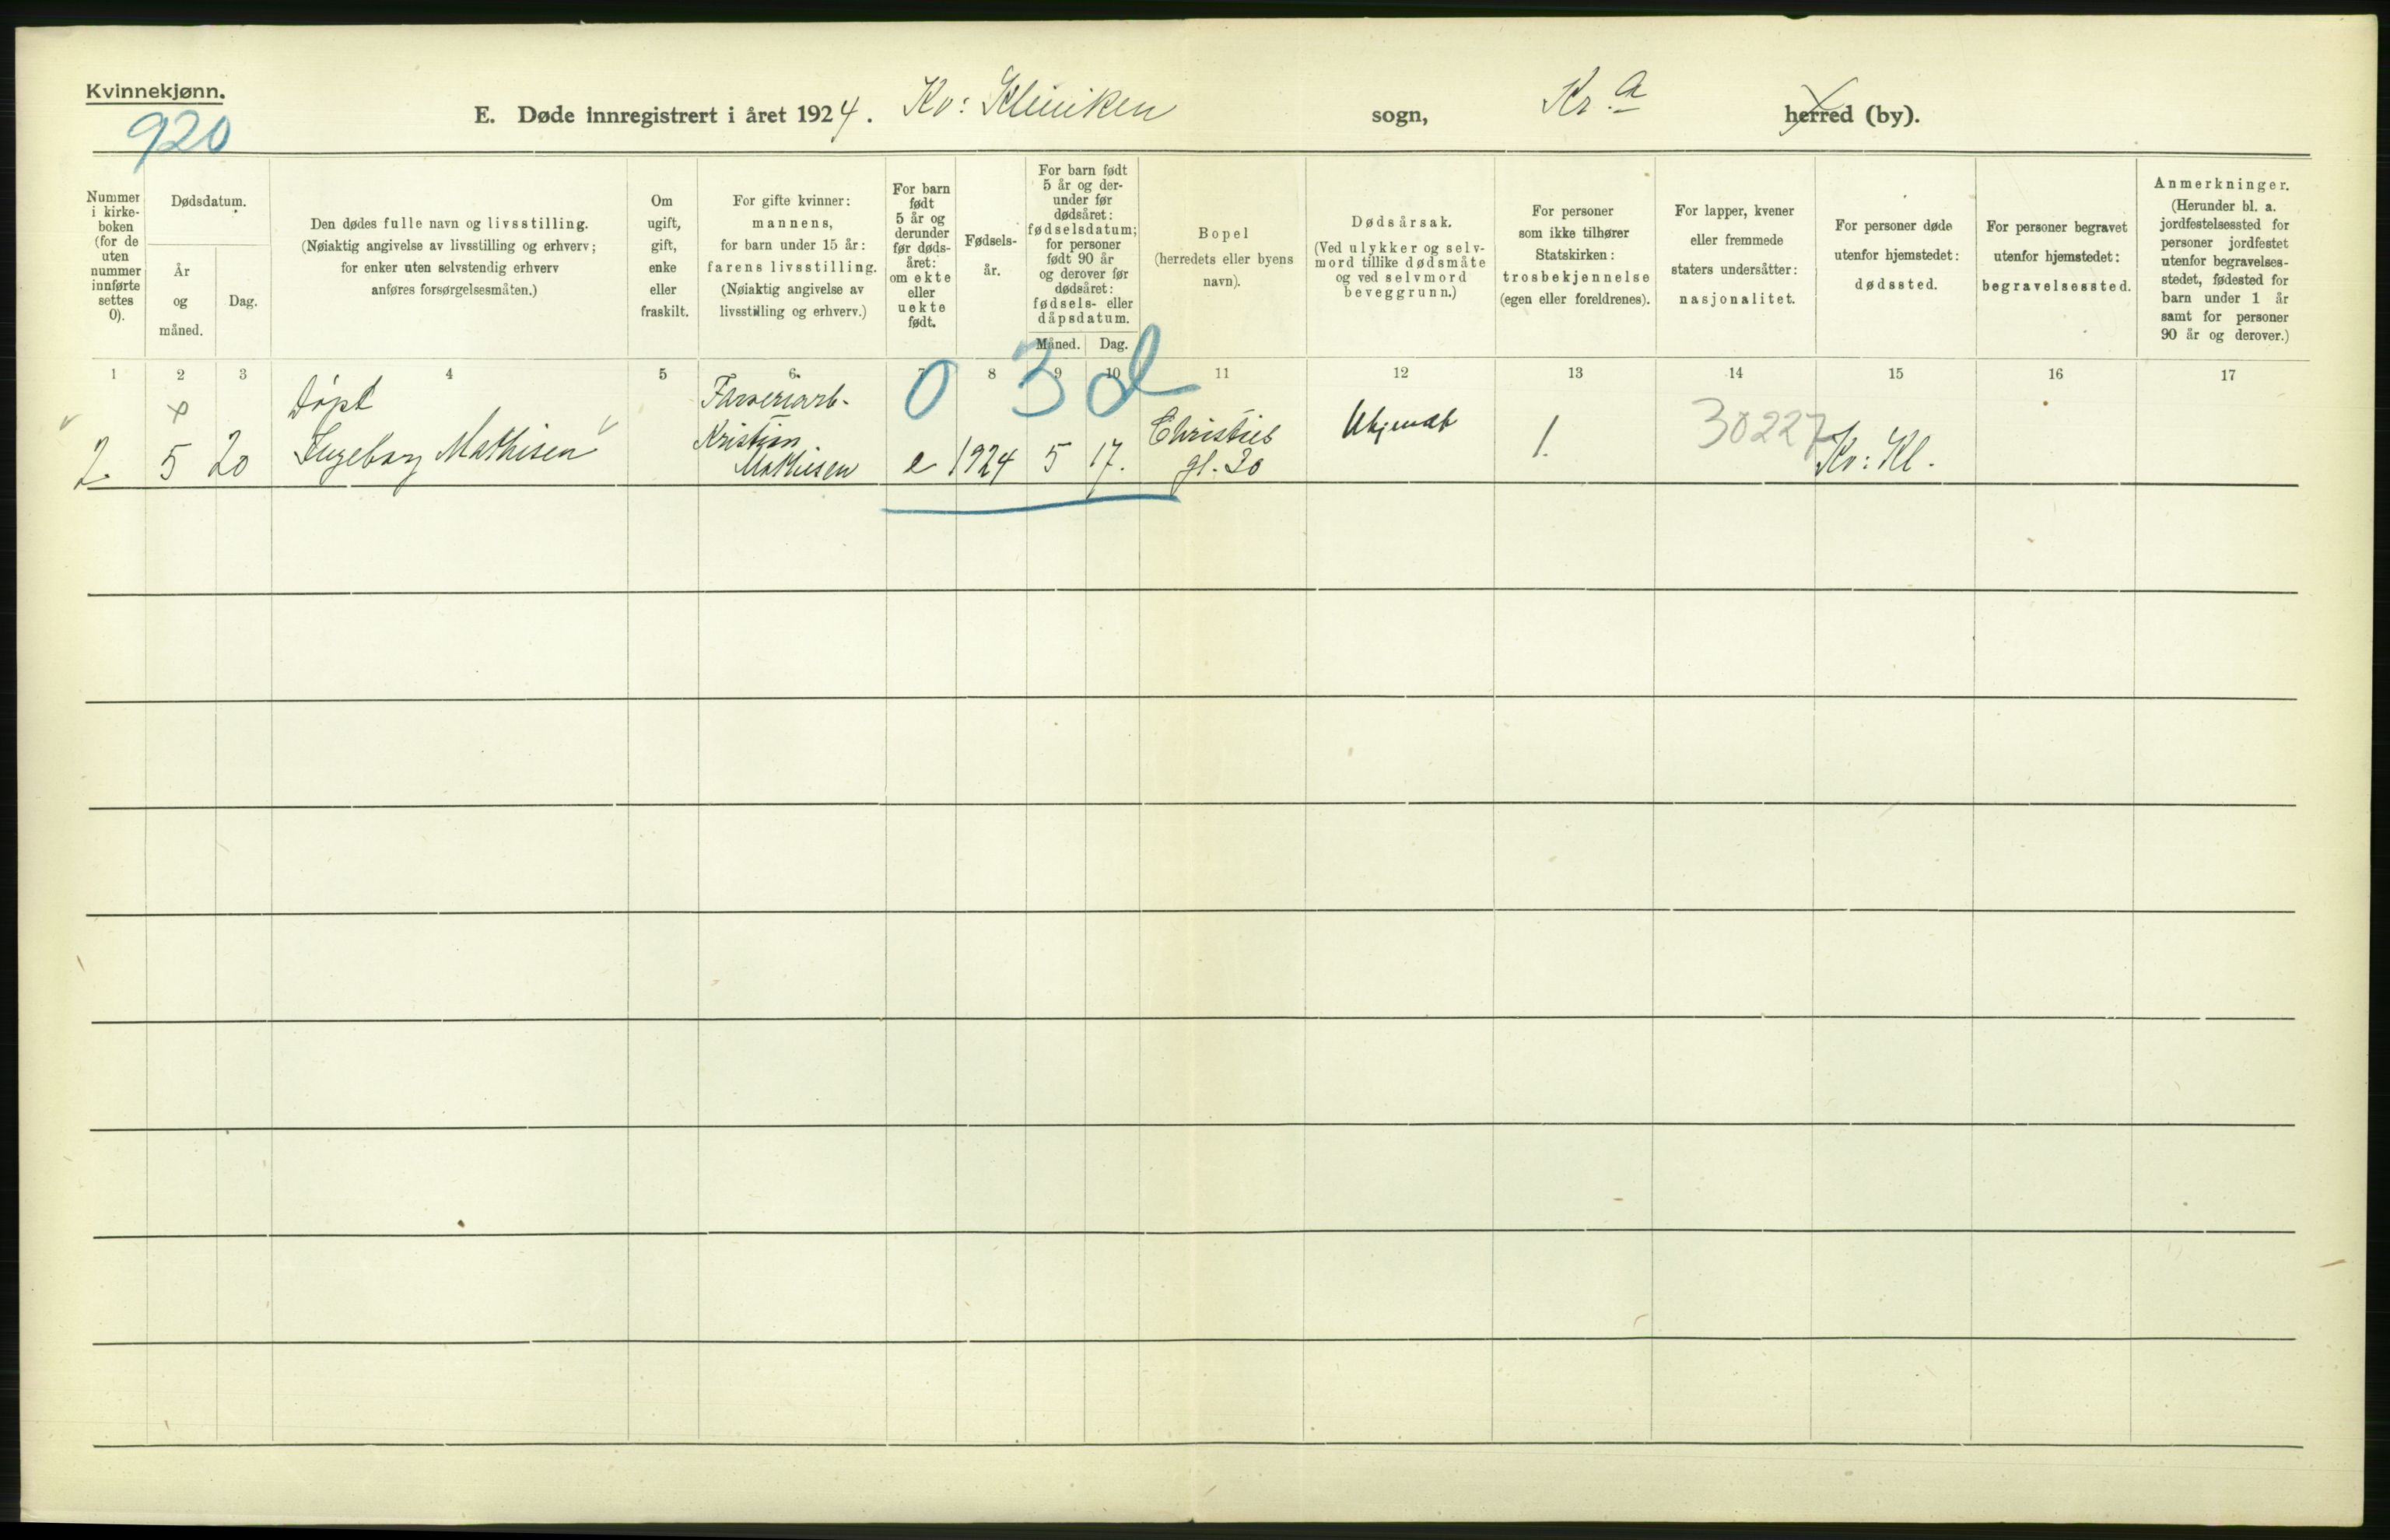 Kvinnekjønn.
920
E. Døde innregistrert i året 1924. Kv: Kliniken sogn, Kr.a herred (by).
Nummer
i kirke-
boken
(for de
uten
nummer
innførte
settes
0).
Dødsdatum.
År
og
måned.
Dag.
Den dødes fulle navn og livsstilling.
(Nøiaktig angivelse av livsstilling og erhverv;
for enker uten selvstendig erhverv
anføres forsørgelsesmåten.)
Om
ugift,
gift,
enke
eller
fraskilt.
For gifte kvinner:
mannens,
for barn under 15 år:
farens livsstilling.
(Nøiaktig angivelse av
livsstilling og erhverv.)
For barn
født
5 år og
derunder
før døds-
året:
om ekte
eller
uekte
født.
Fødsels-
år.
For barn født
5 år og der-
under før
dødsåret:
fødselsdatum;
for personer
født 90 år
og derover før
dødsåret:
fødsels- eller
dåpsdatum.
Måned. Dag.
Bopel
(herredets eller byens
navn).
Dødsårsak.
(Ved ulykker og selv-
mord tillike dødsmåte
og ved selvmord
beveggrunn.)
For personer
som ikke tilhører
Statskirken:
trosbekjennelse
(egen eller foreldrenes).
For lapper, kvener
eller fremmede
staters undersåtter:
nasjonalitet.
For personer døde
utenfor hjemstedet:
dødssted.
For personer begravet
utenfor hjemstedet:
begravelsessted.
Anmerkninger.
(Herunder bl. a.
jordfestelsessted for
personer jordfestet
utenfor begravelses-
stedet, fødested for
barn under 1 år
samt for personer
90 år og derover.)
1 2 3 4 5 6. 7 8 9 10 11 12 13 14 15 16 17
0 3 d
2.
5 20
Døpt
Ingeborg Mathisen
Kristian
Mathisen
e 1924 5 17.
Christies
gt. 30
1.
30227
Kv: Kl.